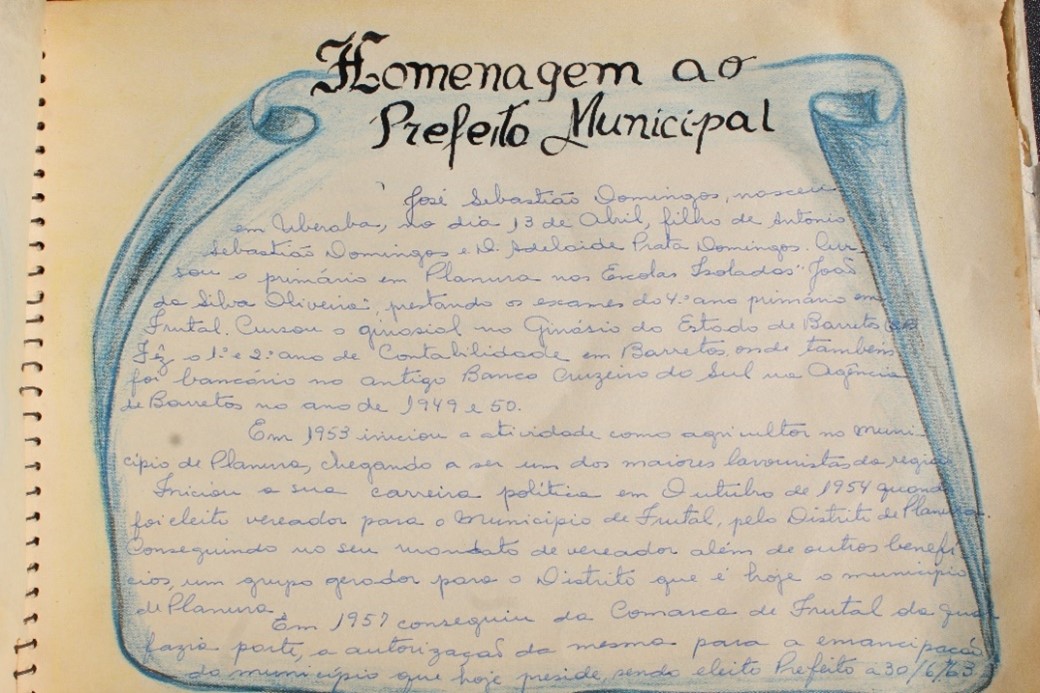 Homenagem ao
Prefeito Municipal
José Sebastião Domingos, nasceu
em Uberaba, no dia 13 de Abril, filho de Antonio
Sebastião Domingos e D. Adelaide Prata Domingos. Cur-
sou o primário em Planura nas Escolas Isoladas "João
da Silva Oliveira", prestando os exames do 4.º ano primário em
Frutal. Cursou o ginasial no Ginásio do Estado de Barretos
Fêz o 1.º e 2.º ano de Contabilidade em Barretos, onde também
foi bancário no antigo Banco Cruzeiro do Sul na Agência
de Barretos no ano de 1949 e 50.
Em 1953 iniciou a atividade como agricultor no Muni-
cípio de Planura, chegando a ser um dos maiores lavouristas da região
Iniciou a sua carreira política em Outubro de 1954 quando
foi eleito vereador para o Município de Frutal, pelo Distrito de Planura.
Conseguindo no seu mandato de vereador além de outros benefí
cios, um grupo gerador para o Distrito que é hoje o município
de Planura.
Em 1957 conseguiu da Comarca de Frutal da qual
fazia parte, a autorização da mesma para a emancipação
do município que hoje preside, sendo eleito Prefeito a 30/6/63